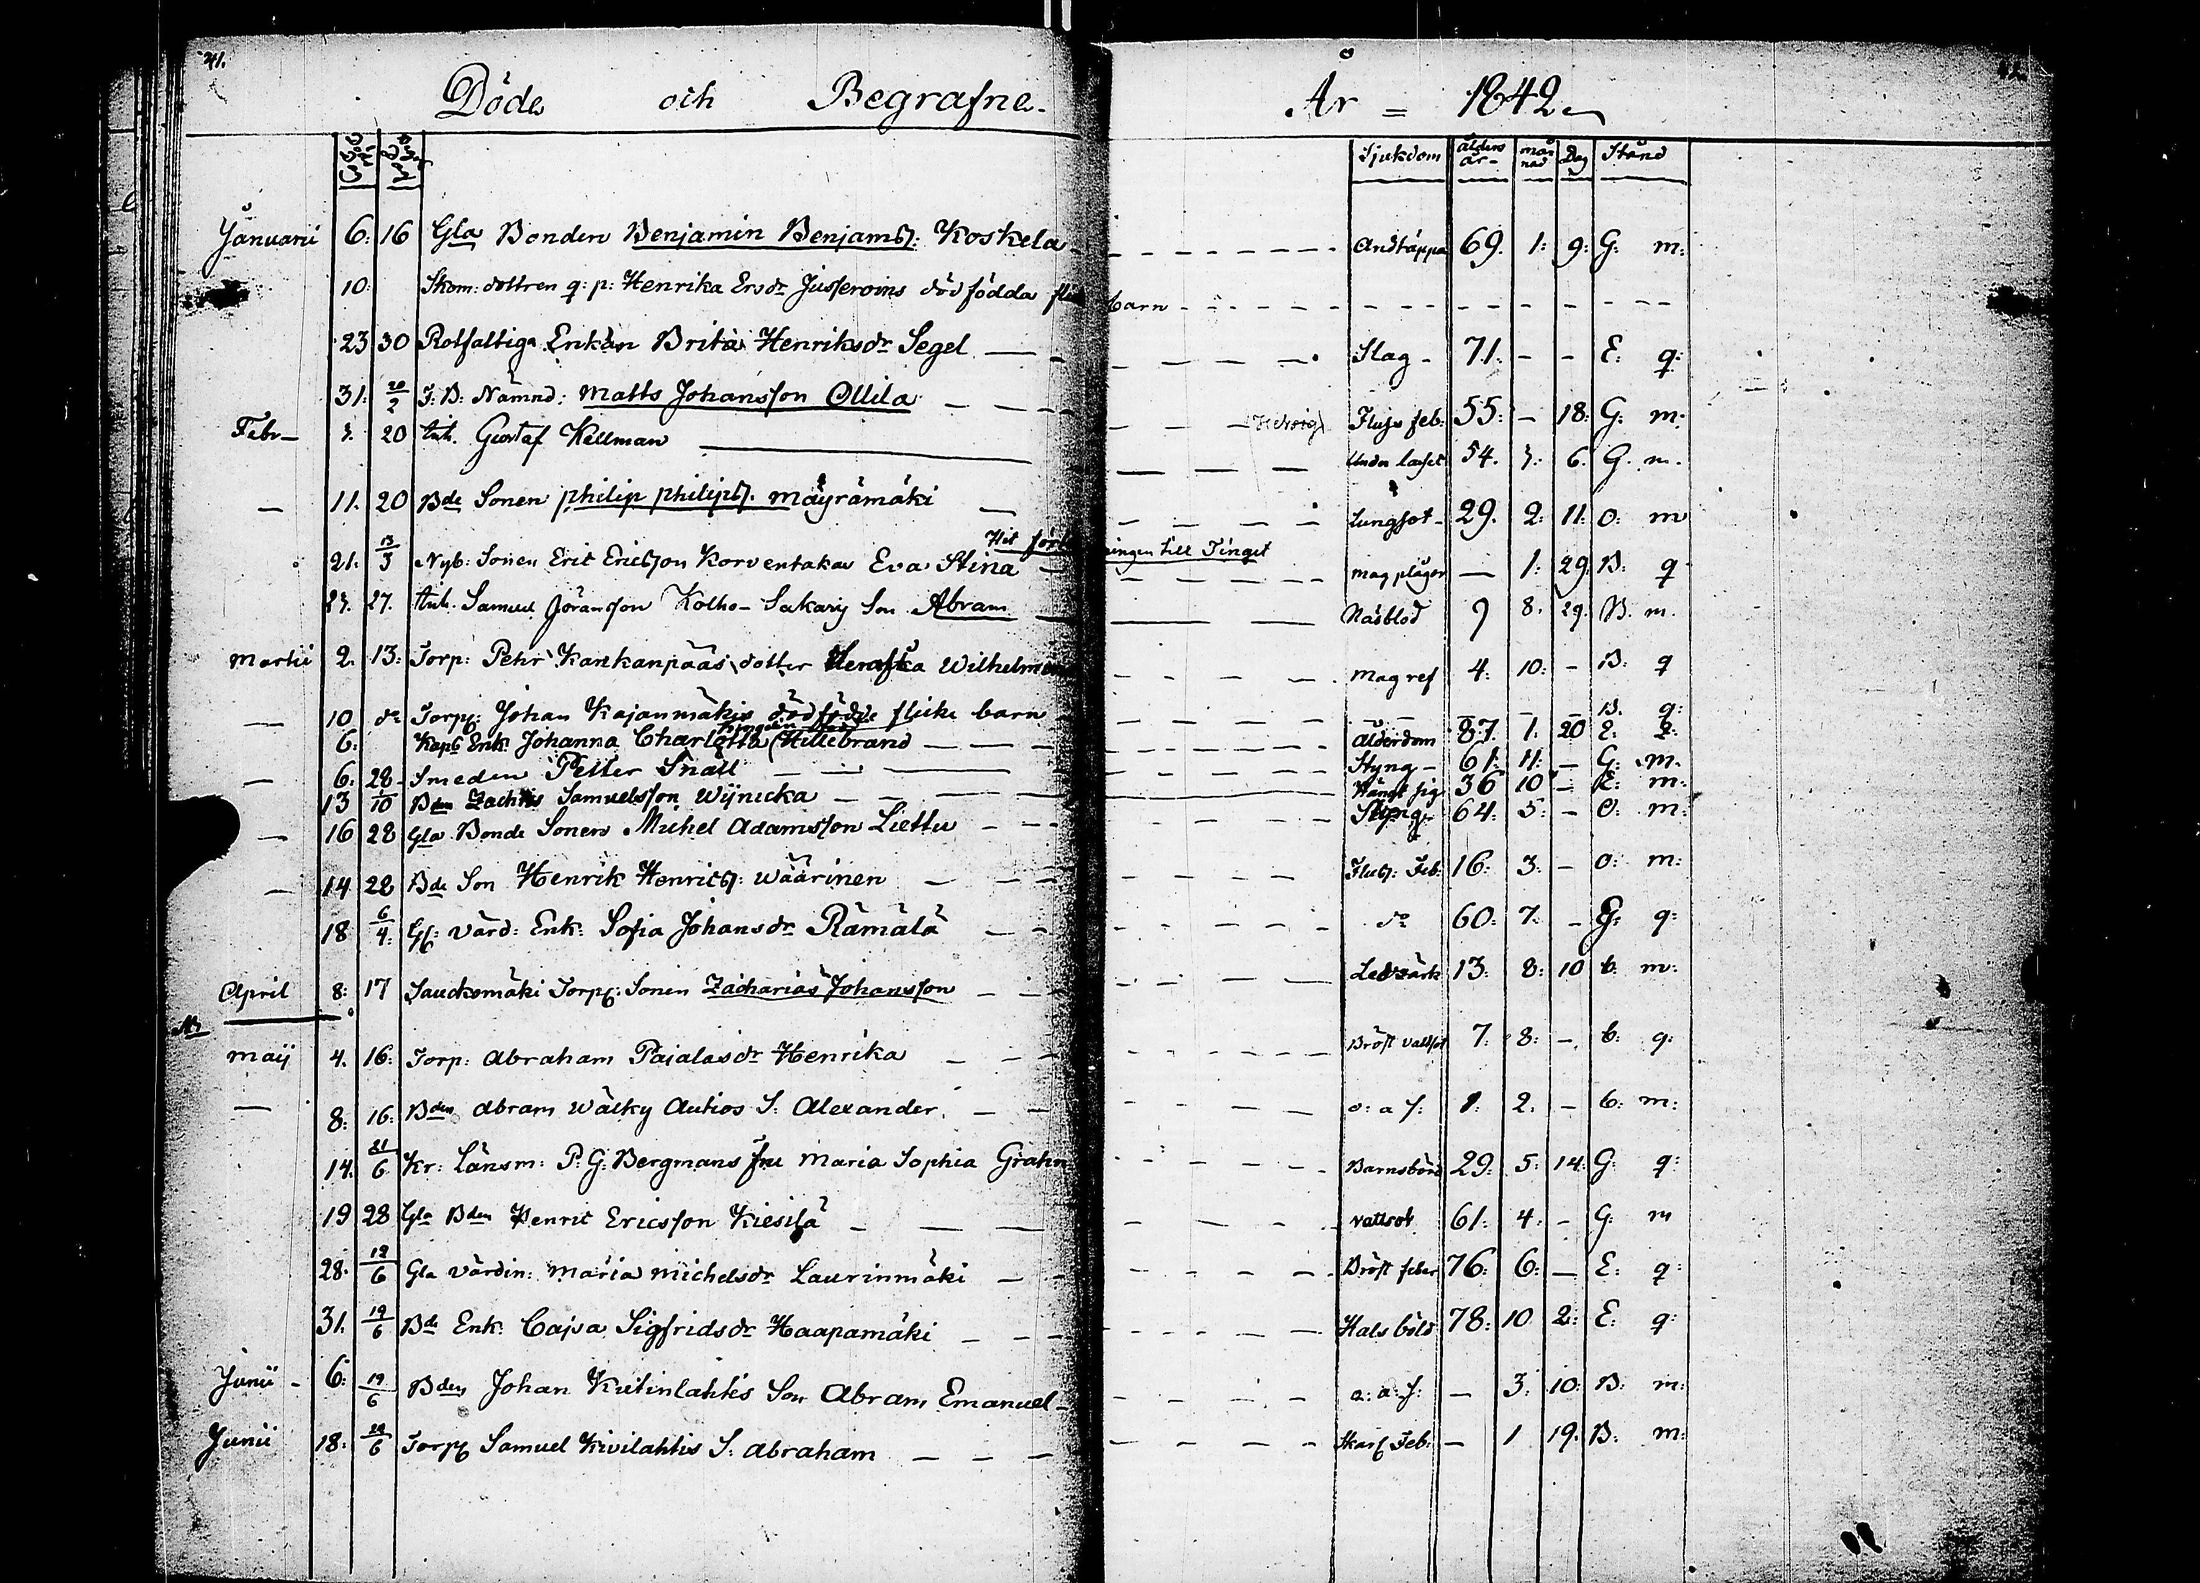 41.
Döde och Begrafne År = 1842
Sjukdom ålders år månad Dag Stånd
Januarii 6: 16 Gla Bonden Benjamin Benjamss: Koskela - - - - - - - Andtäppa 69. 1: 9: G: m:
10: Skom: dottren q: p: Henrika Ersdr dödfödda barn - - - - - - - - - -
23 30 Rotfattiga Enkan Brita Henriksdr Segel - - - - Slag - 71. - - E: q:
31. 20/2 F: B: Nämnd: Matts Johansson Ollila - - - - - - Fluss feb: 55: - 18: G: m:
Febr - 20 Inh. Gustaf Kellman - - - 54. 6. G. m.
- 11. 20 Bde Sonen philip philipss. mäyrämäki - - - - - Lungsot - 29. 2: 11: O: m
Hit förd till Tinget
21. 13/3 Nyb: Sonen Eric Ericsson Korventaka Eva Stina - - - - mag plågor - 1: 29: B: q
27. Inh. Samuel Göransson Kolho - Son Abram - - - Näsblod 9 8. 29. B. m.
Martii 2. 13: Torp: Pehr Kankanpääs dotter Wilhelmina - - - - mag ref 4. 10: - B: q
- 10 do Torp: Johan Kajanmäkis dödfödde flicke barn - - - B. q:
6: Kapt Enk: Johanna Charlotta (Hillebrand - - - - Ålderdom 87. 1. 20 E:
- 6. 28 - Smeden Petter Snäll - - - - Styng - 61. 11. - G: m.
13 Bden Zachris Samuelsson Wijnicka - - - - Hängt sig 36 10 - E: m:
- 16 28 Gla Bonde Sonen Michel Adamsson Liettu - - - - Styng 64. 5: - O: m:
- 14 28 Bde Son Henrik Henricss: Wäärinen - - - - Fluss: Feb: 16: 3. - O: m:
18 6/4: värd: Enk: Sofia Johansdr Rämälä - - - - do 60: 7. - q:
April 8: 17 Sauckomäki Torp: Sonen Zacharias Johansson - - - - Ledvärk 13. 8: 10 b. m:
Maij 4. 16: Torp: Abraham Pajalasdr Henrika - - - - Bröst vattsot 7. 8: - b. q.
- 8: 16: Bden Abram Wälky Autios S: Alexander. - - - - 2. - b: m:
14. 6 Kr: Länsm: P: G: Bergmans fru Maria Sophia Grahn - - - - Barnsbörd 29: 5: 14: G: q:
19 28 Gla Bden Henric Ericsson Kiesilä - - - - vattsot 61. 4: - G: m
28. 6 Gla värdin: Maria Michelsdr Laurinmäki - - - - Bröst feber 76. 6: - E: q:
31. 19/6 Bde Enk: Cajsa Sigfridsdr Haapamäki - - - - Hals böld 78: 10 2: E: q:
Junii - 6: 19/6 Bden Johan Kutinlahtis Son Abram Emanuel - - - - - 3: 10: B: m:
Junii 18: 6 Torp Samuel Kivilahtis S: Abraham - - - - Skarl Feb: - 1 19. B: m: